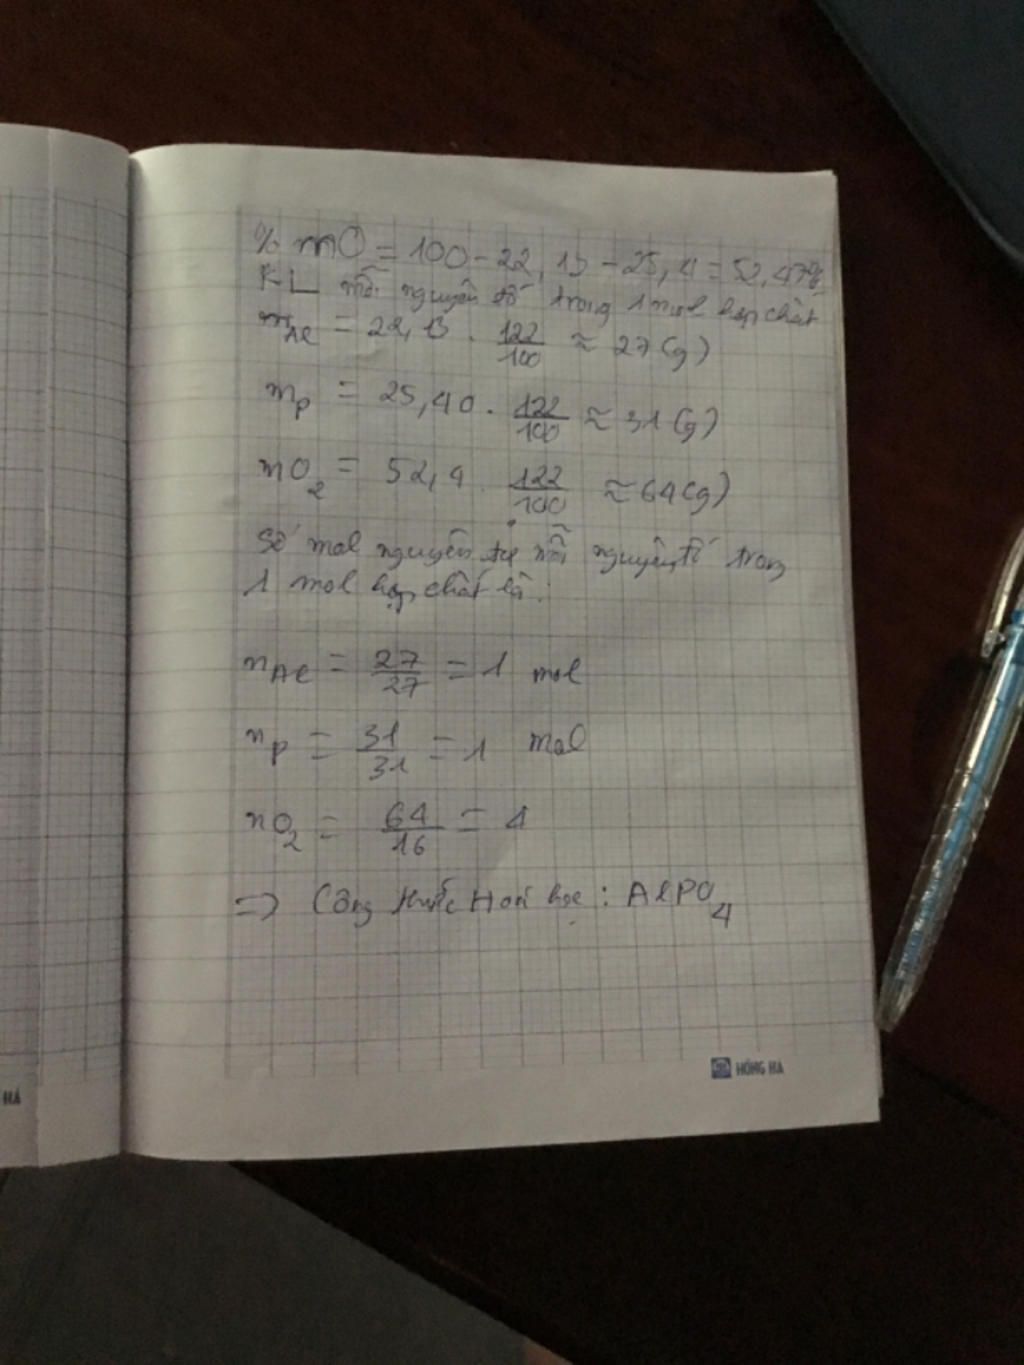 % mO = 100 - 22,13 - 25,4 = 52,47%
KL mỗi nguyên tố trong 1 mol hợp chất
mAl = 22,13 . 122/100 ≈ 27 (g)
mP = 25,40 . 122/100 ≈ 31 (g)
mO2 = 52,4 . 122/100 ≈ 64 (g)
Số mol nguyên tử mỗi nguyên tố trong
1 mol hợp chất là :
nAl = 27/27 = 1 mol
nP = 31/31 = 1 mol
nO2 = 64/16 = 4
=> Công thức Hoá học : AlPO4
HỒNG HÀ
HÀ